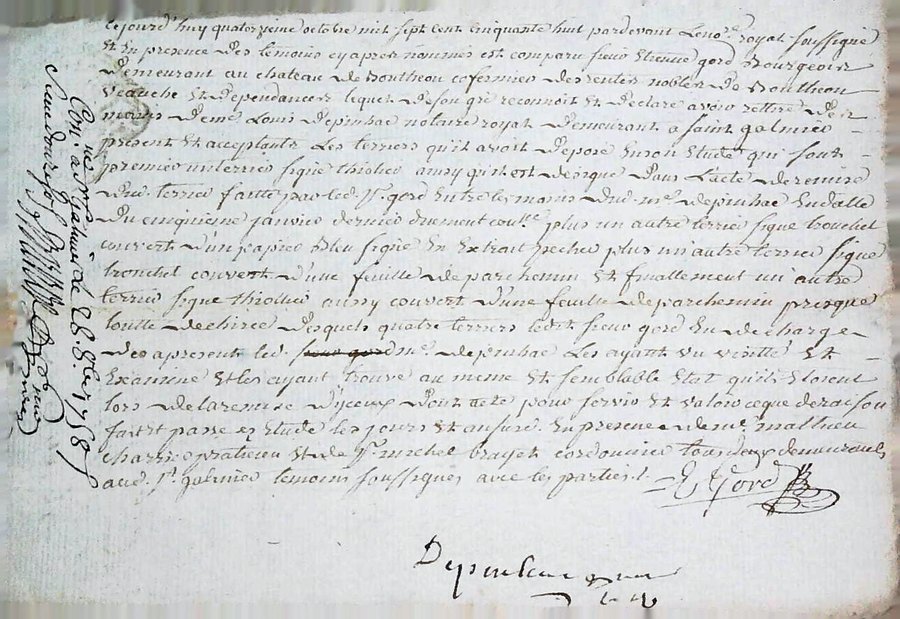 cejourd'huy quatorzieme octobre mil sept cent cinquante huit pardevant Le no.re royal soussigné
Et En presence des temoins cy apres nommés est comparu sieur Etienne gord Bourgeois
Demeurant au chateau de Boutheon cofermier des rentes nobles de Boutheon
veauche Et dependances lequel de son gré reconnoit Et declare avoir rettiré des
mains de me Louis depinhac notaire royal demeurant a saint galmier
present Et acceptant Les terriers qu'il avoit deposé En son Etude qui sont
premier un terrier signé thiolier ainsy qu'il est designé dans l'acte de remise
dud. terrier faitte par led. sr. gord Entre les mains dud. me. depinhac En datte
du cinquieme janvier dernier duement coll.é plus un autre terrier signé tronchet
couvert d'un papier Bleu signé En Extrait pecher plus un autre terrier signé
tronchet couvert d'une feuille de parchemin Et finallement un autre
terrier signé thiolier aussy couvert d'une feuille de parchemin presque
toutte dechirée desquels quatre terriers ledit sieur gord En decharge
des apresent led. sieur gord me. depinhac Les ayant vu visitté Et
Examiné Et les ayant trouvé au meme Et semblable Etat qu'ils Etoient
lors de la remise d'iceux dont acte pour servir Et valoir ce que de raison
fait et passé Etude les jours et an susd. En presence de me. mathieu
praticien Et de sr. michel brayet cordonnier tous deux demeurants
aud. st. galmier temoins soussignés avec les parties.
E Gord
Depinhac
Con.lé a St galmier le 28. 8bre 1758